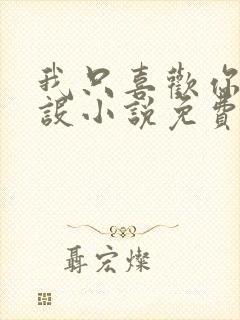 我只喜歡你
設小說免費
聶宏燦